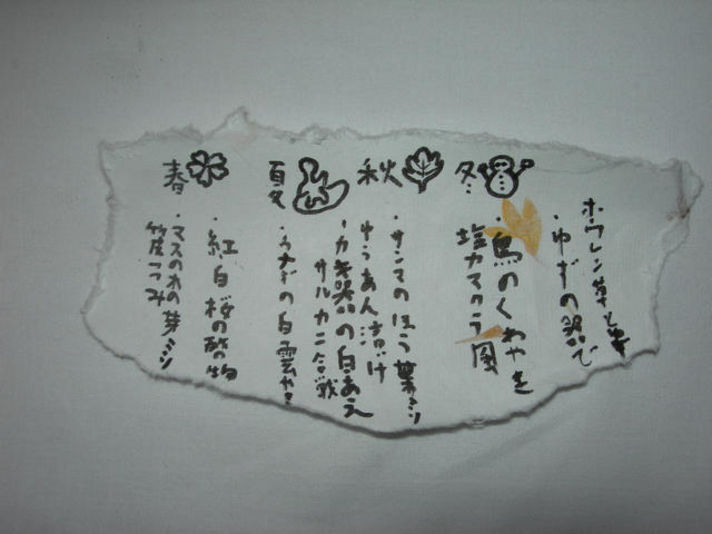 春
・紅白桜の酢の物
・マスの木の芽ミソ
夏
・カキ器の白あえ
サルカニ合戦
・ウナギの白雲やき
秋
・サンマのほう葉ミソ
ゆうあん漬け
冬
・鳥のくわやき
塩カマクラ風
・ゆずの器で
ホウレン草と